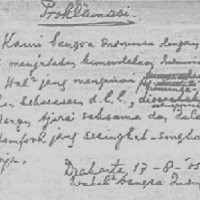 Proklamasi.
Kami bangsa Indonesia dengan
menjatakan kemerdekaan Indonesi
Hal² jang mengenai
kekoeasaan d.l.l.,
dengan tjara seksama dan dalam
tempoh jang sesingkat-singka
nja.
Djakarta, 17-8-'05
Wakil² bangsa Indo